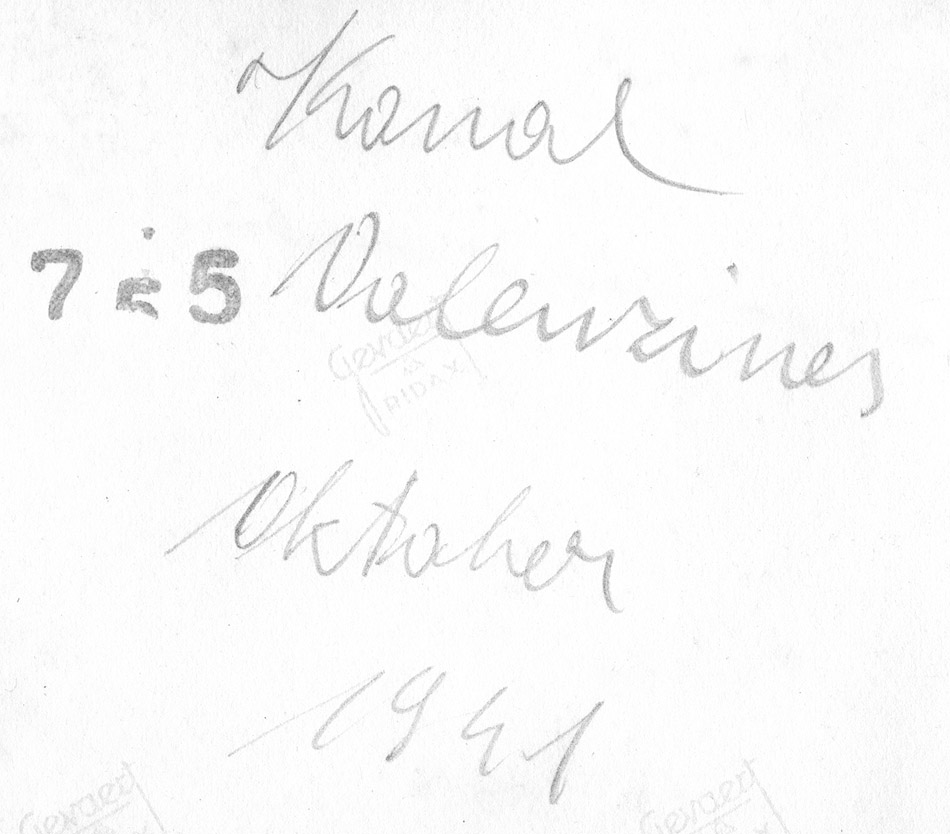 Kanal
7 5 Valenzines
Gevaert
RIDAX
Oktober
1941
Gevaert
Gevaert